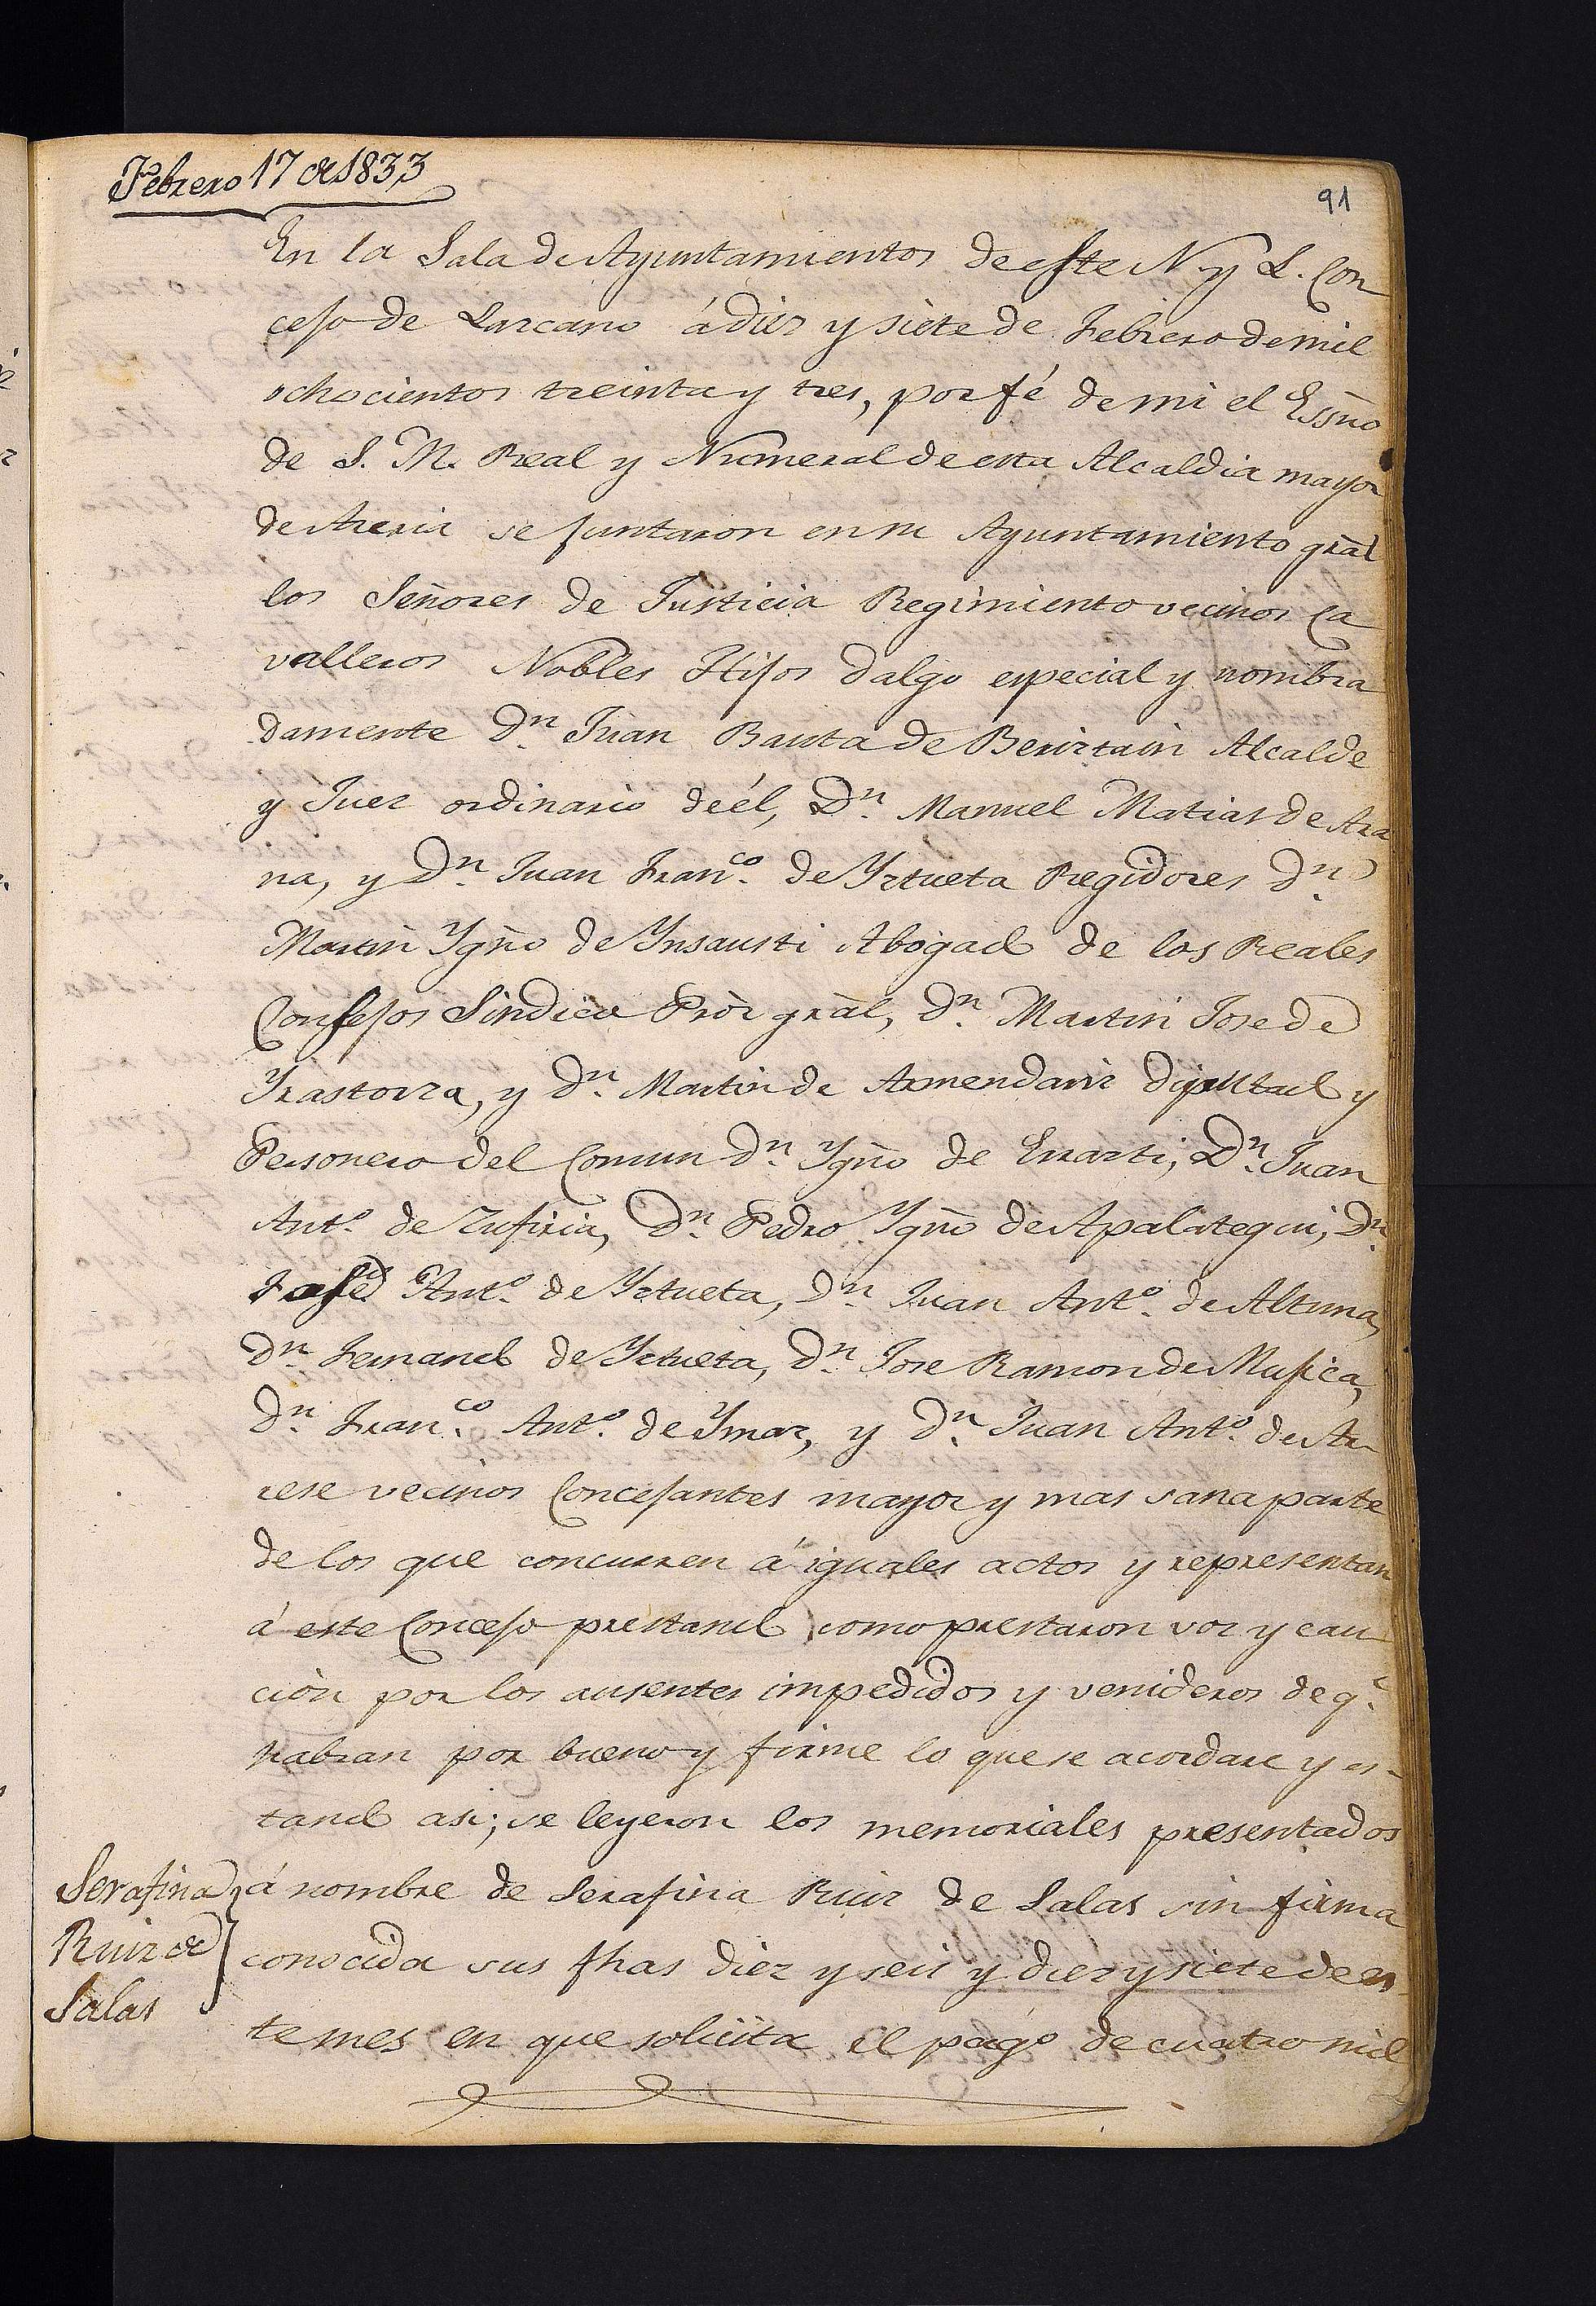 Febrero 17 de 1833
91
En la Sala de Ayuntamientos de este N. y L. Con
cejo de Lazcano á diez y siete de Febrero de mil
ochocientos treinta y tres, por fé de mi el Essño
de S. M. Real y Numeral de esta Alcaldia mayor
de Areria se juntaron en su Ayuntamiento grâl
los Señores de Justicia Regimiento vecinos Ca
valleros Nobles Hijos dalgo especial y nombra
damente Dn. Juan Bauta de Beriztain Alcalde
y Juez ordinario de él, Dn. Manuel Matias de Ara
na, y Dn. Juan Franco. de Yztueta Regidores Dn.
Martin Ygño de Ynsausti Abogado de los Reales
Consejos Sindico Prôr grâl, Dn. Martin Jose de
Yrastorza, y Dn. Martin de Armendariz diputado y
Personero del Comun Dn. Ygño de Errarti, Dn. Juan
Anto. de Zufiria, Dn. Pedro Ygño de Apalategui, Dn.
José Anto. de Yztueta, Dn. Juan Anto. de Altuna,
Dn. Fernando de Yztueta, Dn. Jose Ramon de Mujica,
Dn. Franco. Anto. de Ymaz, y Dn. Juan Anto. de Ar
rese vecinos Concejantes mayor y mas sana parte
de los que concurren á iguales actos y representan
á este Concejo prestando como prestaron voz y cau
ción por los ausentes impedidos y venideros de qe.
habran por bueno y firme lo que se acordare y es-
tando asi; se leyeron los memoriales presentados
Serafina
Ruiz de
Salas
á nombre de Serafina Ruiz de Salas sin firma
conocida sus fhas diez y seis y diez y siete de es
te mes en que solicita el pago de cuatro mil